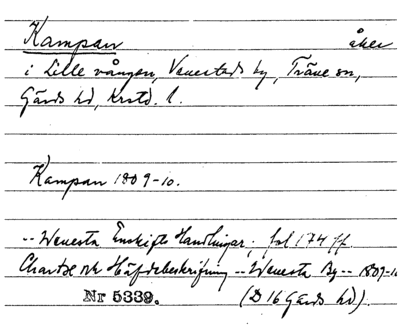 Kampan åker
i Lille vången, Venestads by, Träne sn,
Gärds hd, Krstd. l.
Kampan 1809-10.
-- Wenesta Enskifte Handlingar; fol 174 ff.
Charte ok Häfdebeskrifning -- Wenesta By -- 1809-10
Nr 5339. (D 16 Gärds hd).